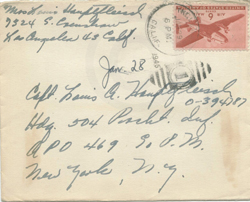 Mrs Louis Hauptfleisch
7324 S. Crenshaw
Los Angeles 43 Calif.
CALIF
UNITED STATES
6¢
Jan 28
Capt. Louis A. Hauptfleisch
0-394187
Hdq. 504 Prcht. Inf.
APO 469 % P.M.
New York, N.Y.